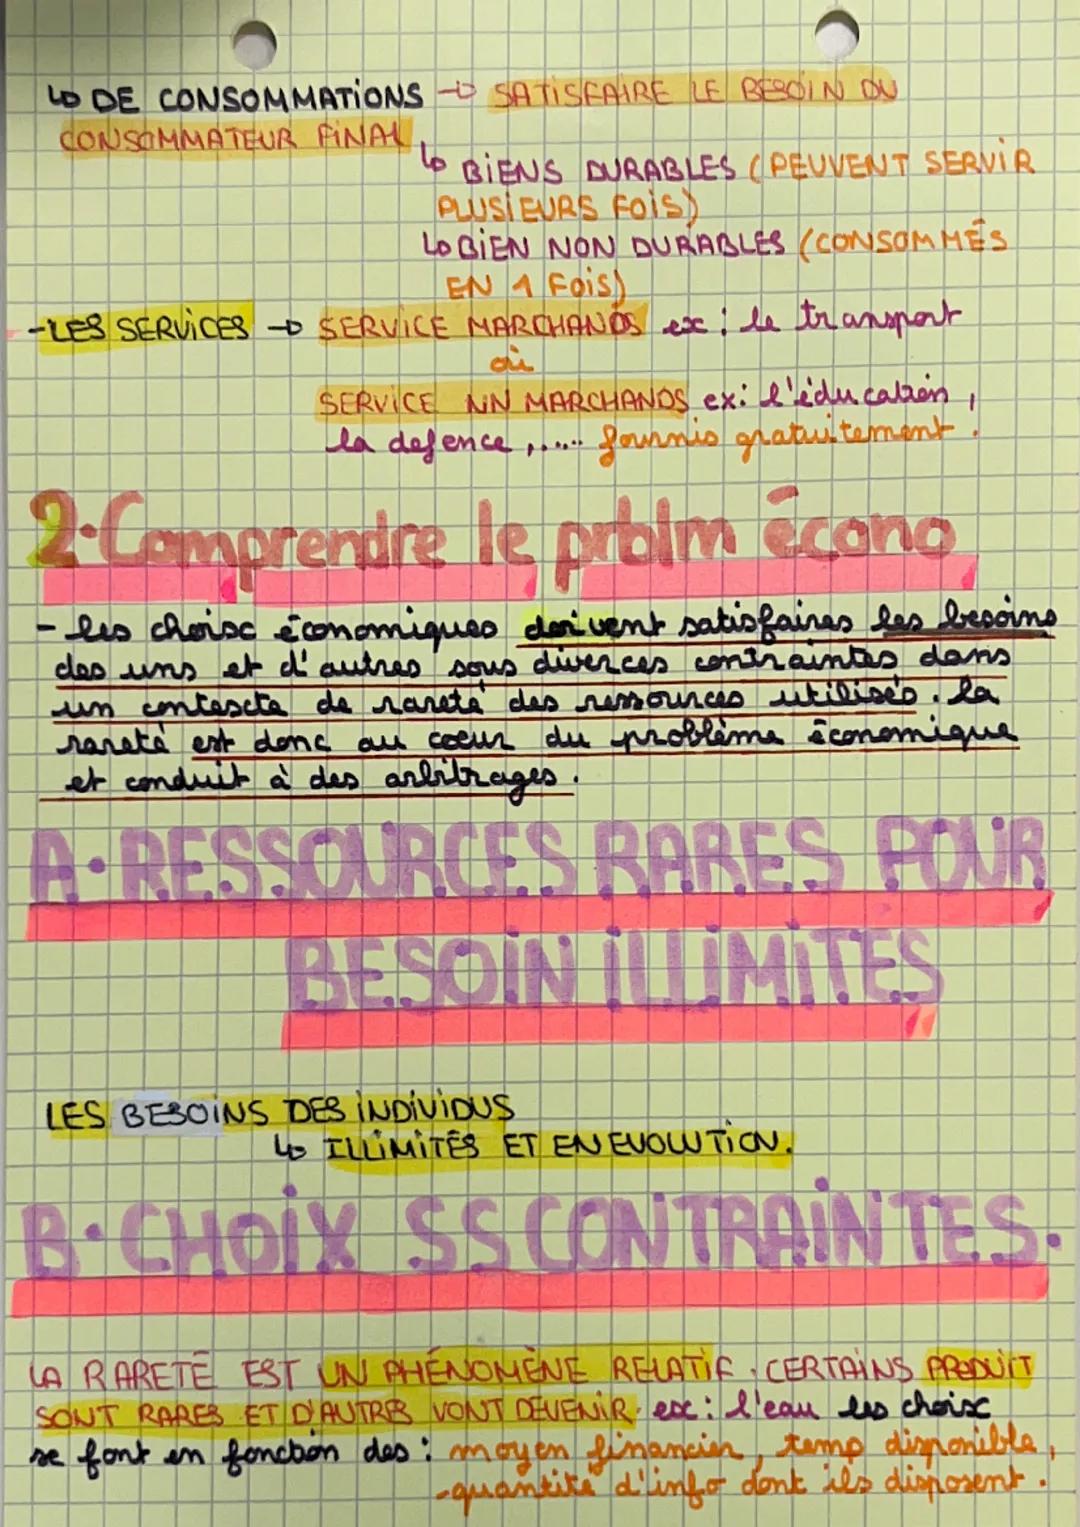 ↳ DE CONSOMMATIONS → SATISFAIRE LE BESOIN DU
CONSOMMATEUR FINAL
↳ BIENS DURABLES (PEUVENT SERVIR
PLUSIEURS FOIS)
↳ BIEN NON DURABLES (CONSOMMÉS
EN 1 FOIS)
-LES SERVICES → SERVICE MARCHANDS ex: le transport
où
SERVICE NN MARCHANDS ex: l'éducation,
la defence,..... fournis gratuitement.
2·Comprendre le prblm écono
- les choix économiques doivent satisfaires les besoins
des uns et d'autres sous diverces contraintes dans
un contexcte de rareté des ressources utilisés. la
rareté est donc au coeur du problème économique
et conduit à des arbitrages.
A·RESSOURCES RARES POUR
BESOIN ILLIMITÉS
LES BESOINS DES INDIVIDUS
↳ ILLIMITÉS ET EN EVOLUTION.
B·CHOIX SS CONTRAINTES.
LA RARETÉ EST UN PHÉNOMÈNE RELATIF. CERTAINS PRODUIT
SONT RARES ET D'AUTRES VONT DEVENIR. ex: l'eau les choix
se font en fonction des: moyen financier, temp disponible,
-quantité d'info dont ils disposent.